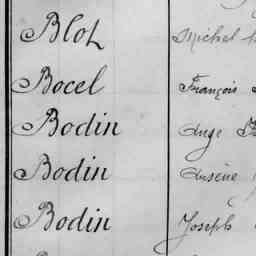 Blot Michel
Bocel François
Bodin Ange
Bodin Arsène
Bodin Joseph